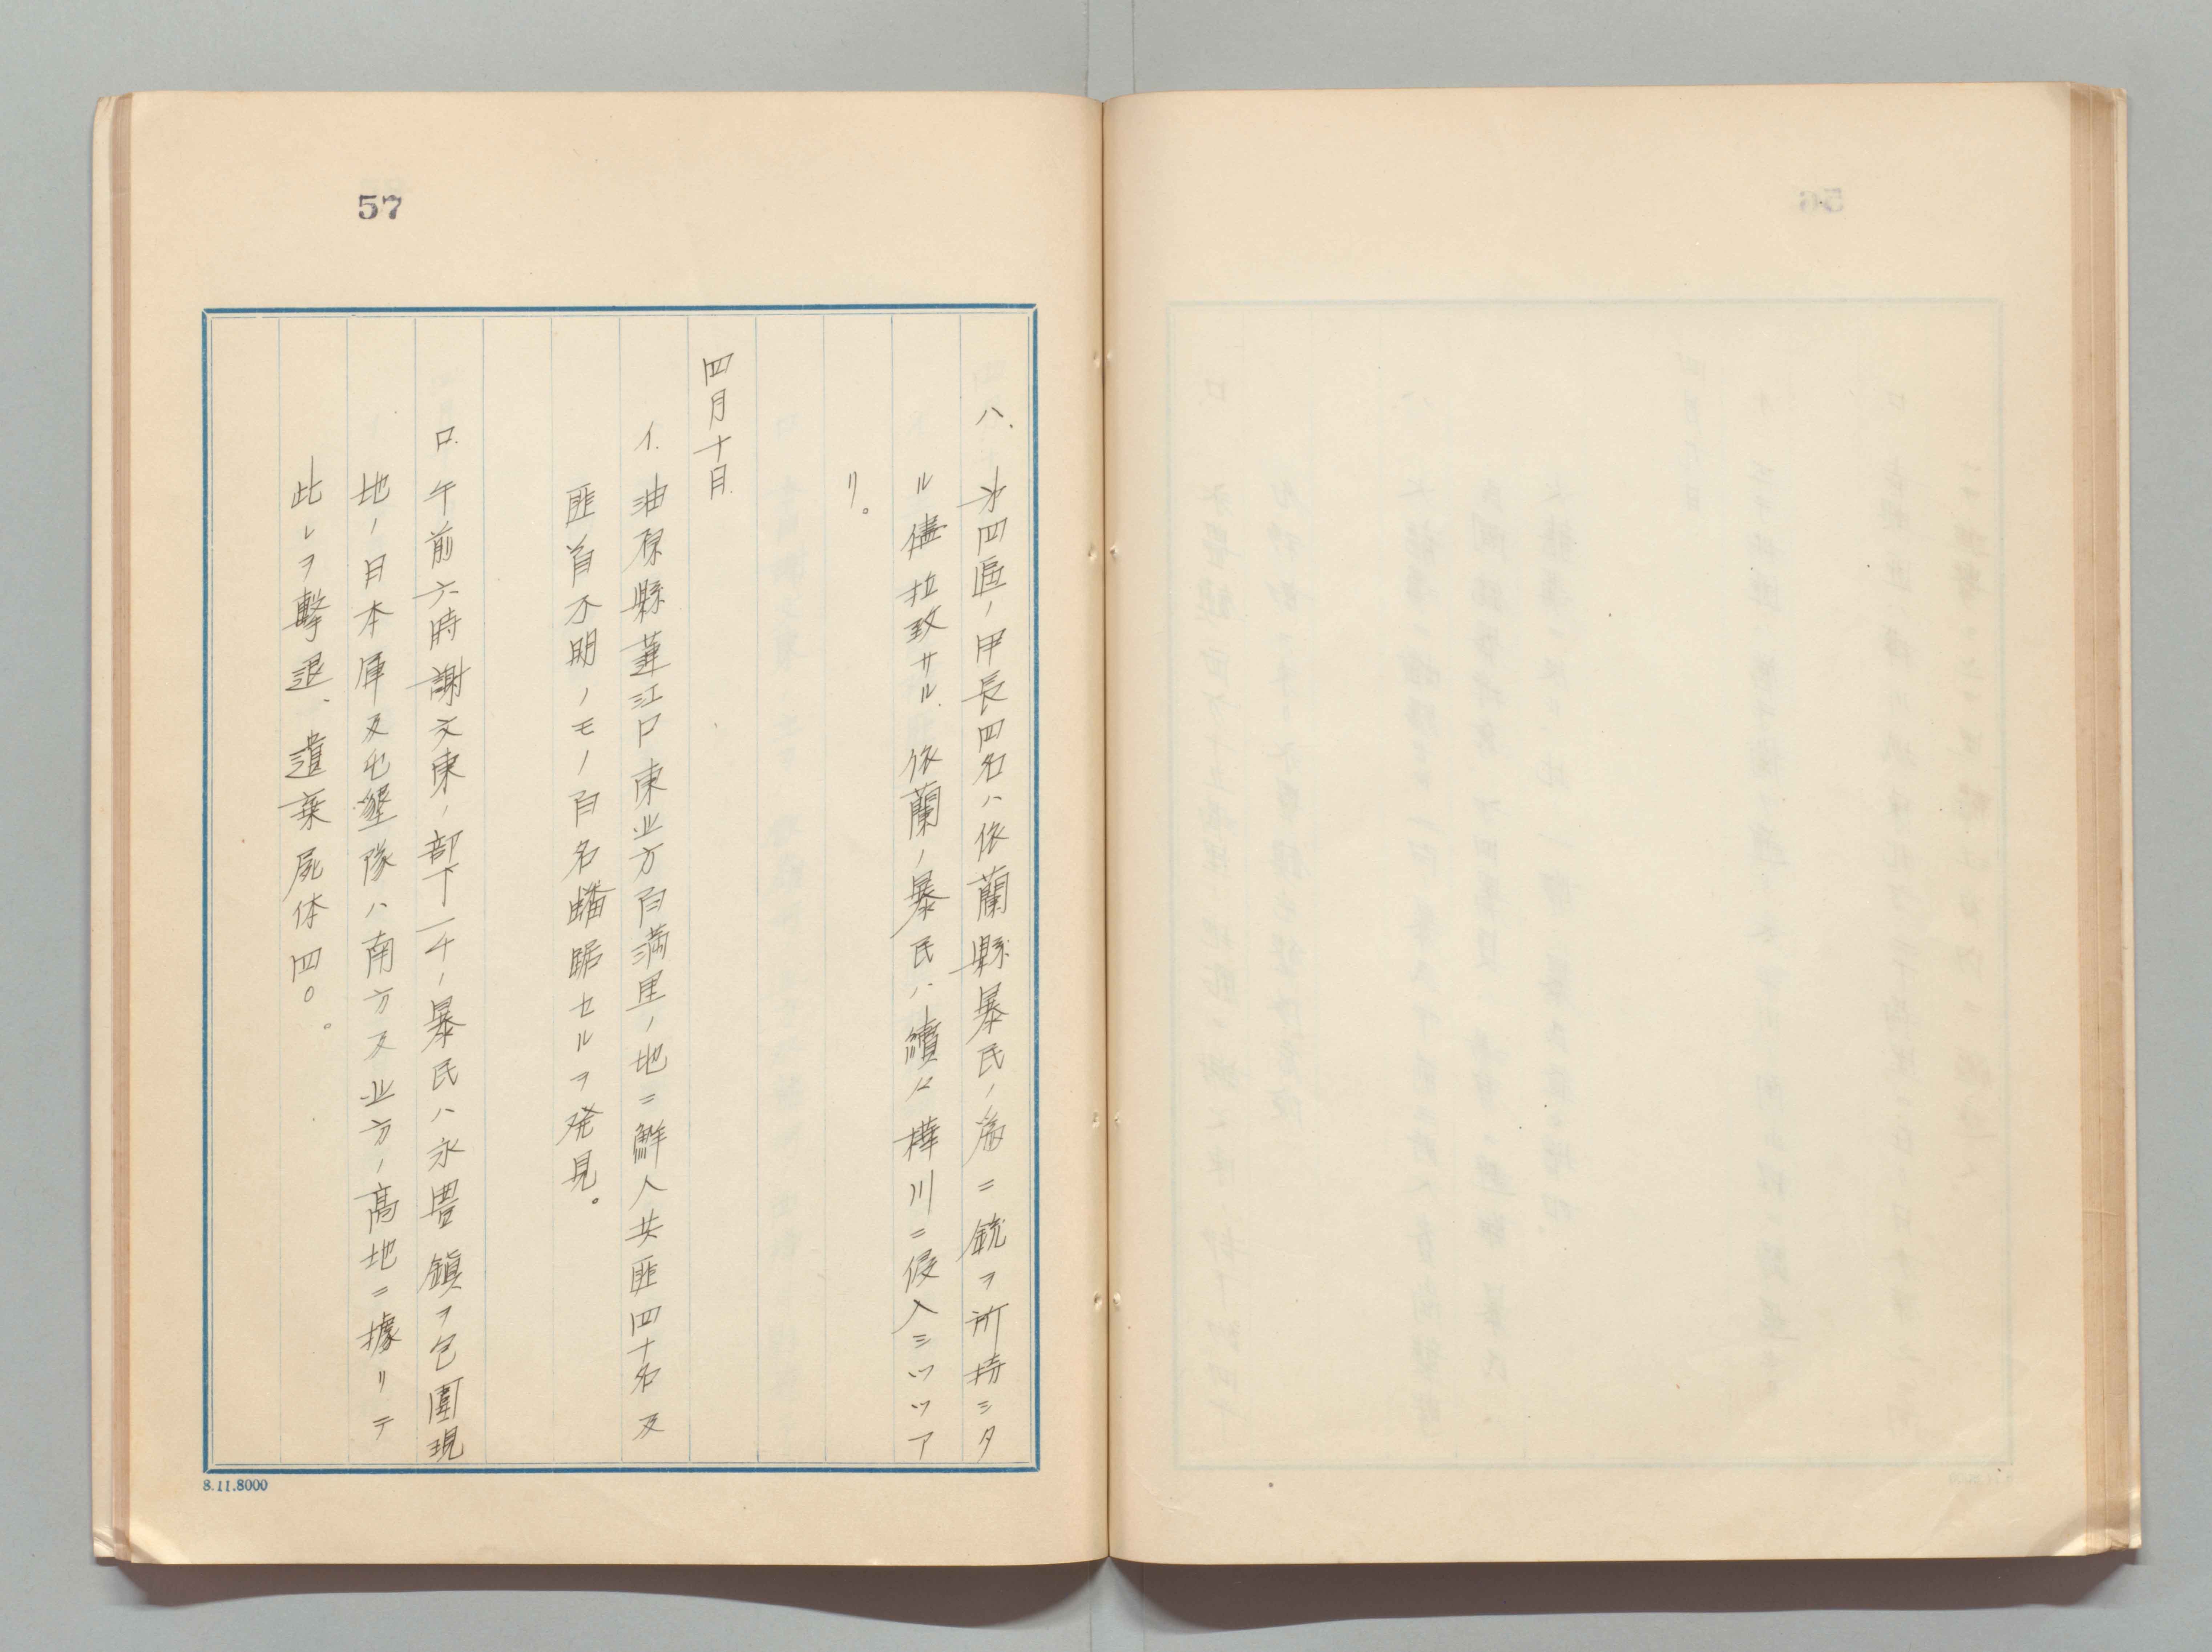 57
ハ、第四區ノ甲長四名ハ依蘭縣暴民ノ為ニ銃ヲ所持シタ
ル儘拉致サル、依蘭ノ暴民ハ續々樺川ニ侵入シツツア
リ。
四月十日
イ、湯原縣蓮江口東北方百満里ノ地ニ鮮人共匪四十名及
匪首不明ノモノ百名蟠踞セルヲ発見。
ロ、午前六時謝文東ノ部下二千ノ暴民ハ永豊鎮ヲ包圍現
地ノ日本軍及屯墾隊ハ南方及北方ノ高地ニ據リテ
此レヲ撃退、遺棄屍体四〇。
8.11.8000
56